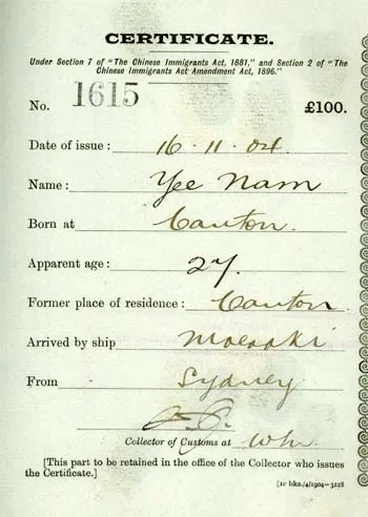 CERTIFICATE.
Under Section 7 of "The Chinese Immigrants Act, 1881," and Section 2 of "The
Chinese Immigrants Act Amendment Act, 1896."
No. 1615 £100.
Date of issue: 16.11.04.
Name: Yee Nam
Born at Canton.
Apparent age: 27.
Former place of residence: Canton.
Arrived by ship Moeraki
From Sydney
Collector of Customs at
[This part to be retained in the office of the Collector who issues
the Certificate.]
[10 bks./4/1904—3128